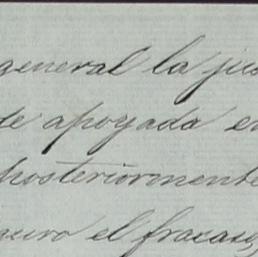 general la jus
de apoyada en
posteriormente
el fracaso,